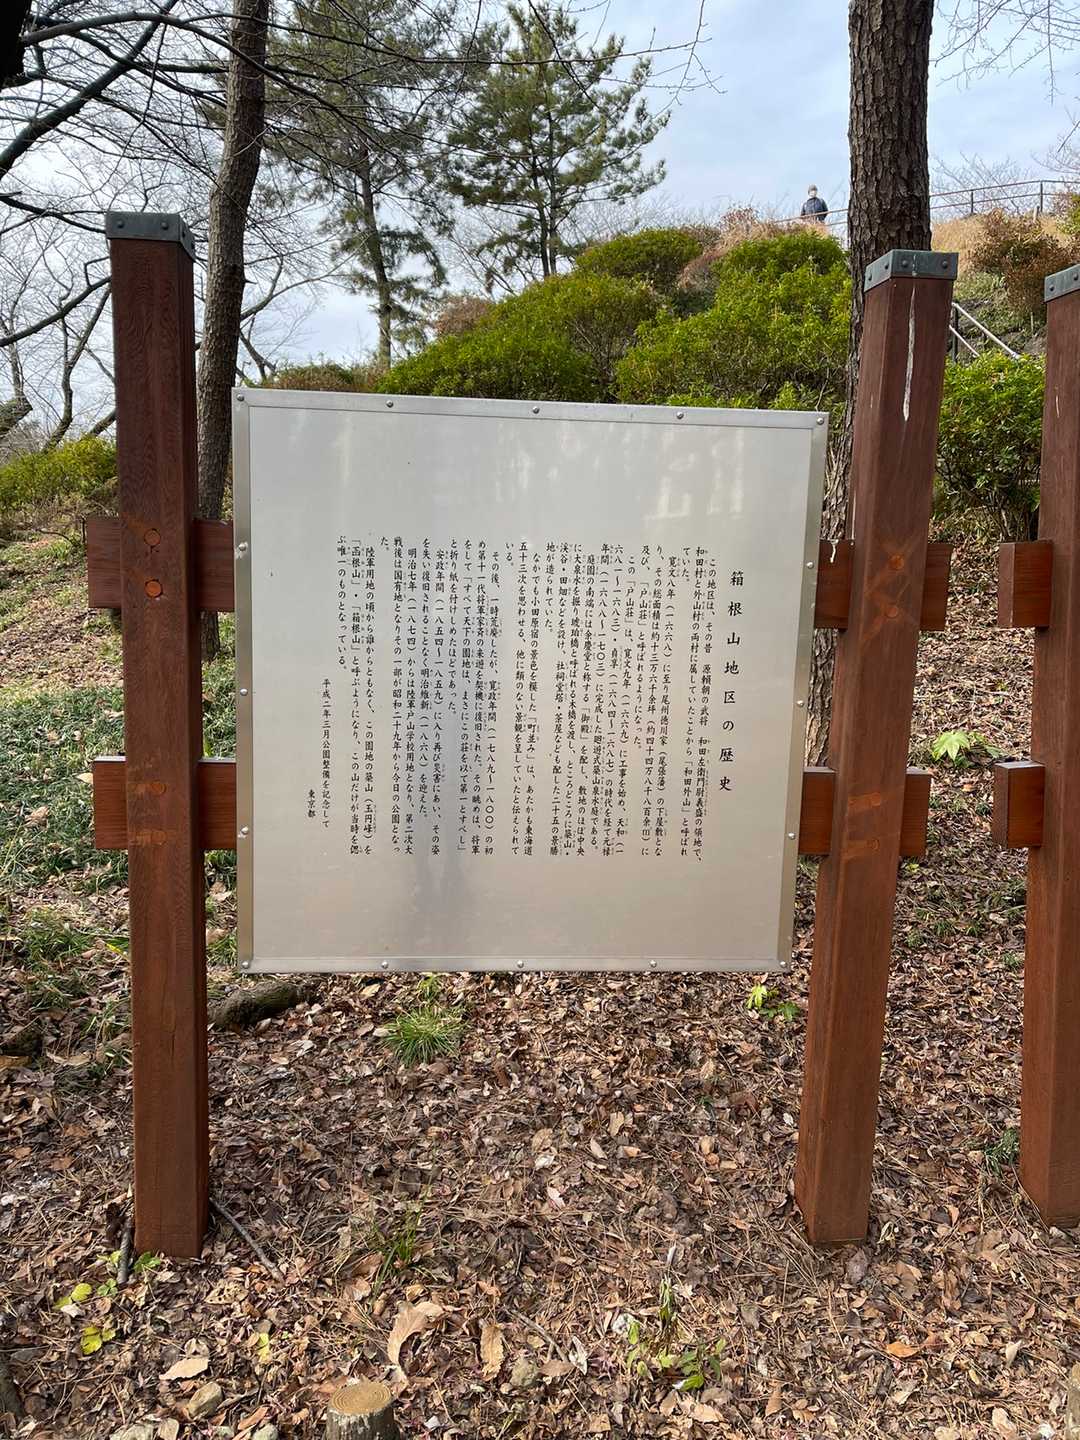 箱根山地区の歴史
この地区は、その昔　源頼朝の武将　和田左衛門尉義盛の領地で、
和田村と外山村の両村に属していたことから「和田外山」と呼ばれ
ていた。
寛文八年（一六六八）に至り尾州徳川家（尾張藩）の下屋敷とな
り、その総面積は約十三万六千余坪（約四十四万八千八百余㎡）に
及び、「戸山荘」と呼ばれるようになった。
この「戸山荘」は、寛文九年（一六六九）に工事を始め、天和（一
六八一〜一六八三）・貞享（一六八四〜一六八七）の時代を経て元禄
年間（一六八八〜一七〇三）に完成した廻遊式築山泉水庭である。
庭園の南端には余慶堂と称する「御殿」を配し、敷地のほぼ中央
に大泉水を掘り琥珀橋と呼ばれる木橋を渡し、ところどころに築山・
渓谷・田畑などを設け、社祠堂塔・茶屋なども配した二十五の景勝
地が造られていた。
なかでも小田原宿の景色を模した「町並み」は、あたかも東海道
五十三次を思わせる、他に類のない景観を呈していたと伝えられて
いる。
その後、一時荒廃したが、寛政年間（一七八九〜一八〇〇）の初
め第十一代将軍家斉の来遊を契機に復旧された。その眺めは、将軍
をして「すべて天下の園地は、まさにこの荘を以て第一とすべし」
と折り紙を付けしめたほどであった。
安政年間（一八五四〜一八五九）に入り再び災害にあい、その姿
を失い復旧されることなく明治維新（一八六八）を迎えた。
明治七年（一八七四）からは陸軍戸山学校用地となり、第二次大
戦後は国有地となりその一部が昭和二十九年から今日の公園となっ
た。
陸軍用地の頃から誰からともなく、この園地の築山（玉円峰）を
「函根山」・「箱根山」と呼ぶようになり、この山だけが当時を偲
ぶ唯一のものとなっている。
平成二年三月公園整備を記念して
東京都